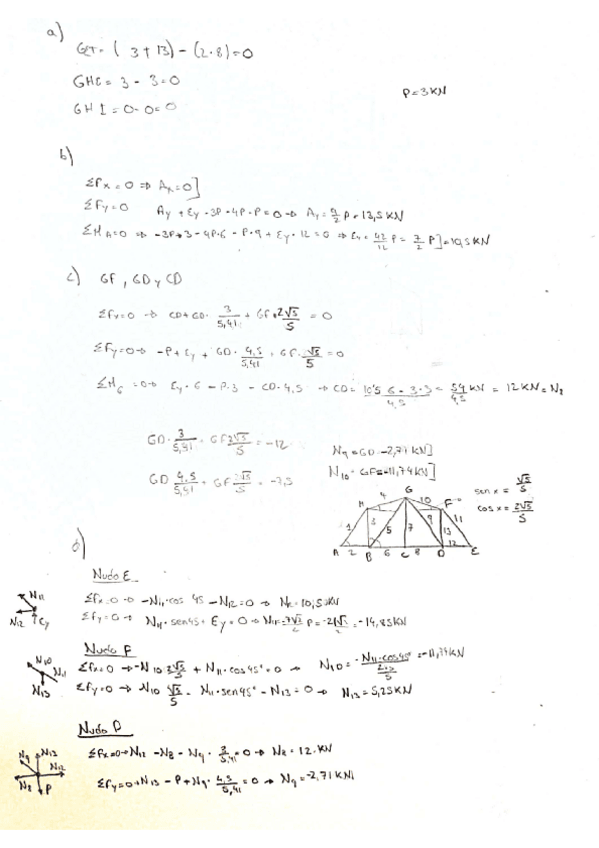 a)
GLT = ( 3 + 13) - (2·8) = 0
GHE = 3 - 3 = 0
P = 3 KN
GHI = 0 - 0 = 0
b)
ΣFx = 0 ⇒ Ax = 0]
ΣFy = 0 Ay + Ey - 3P - 4P - P = 0 → Ay = 9/2 P = 13,5 KN
ΣMA = 0 ⇒ -3P·3 - 4P·6 - P·9 + Ey·12 = 0 ⇒ Ey = 42/12 P = 7/2 P] = 10,5 KN
c) GF, GD y CD
ΣFx = 0 → CD + GD · 3/5,41 + GF · 2√5/5 = 0
ΣFy = 0 → -P + Ey + GD · 4,5/5,41 + GF · √5/5 = 0
ΣMG = 0 → Ey · 6 - P·3 - CD · 4,5 → CD = 10'5·6 - 3·3/4,5 = 54/4,5 KN = 12 KN = N8
GD · 3/5,41 + GF 2√5/5 = -12
N9 = GD = -2,71 KN]
GD 4,5/5,41 + GF √5/5 = -7,5
N10 = GF = -11,74 KN]
sen x = √5/5
cos x = 2√5/5
G
4 10
H F
1 3 5 7 9 13 11
A 2 B 6 C 8 D 12 E
d)
Nudo E
N11 N12 Ey
ΣFx = 0 → -N11·cos 45 - N12 = 0 → N12 = 10,5 KN
ΣFy = 0 → N11·sen45 + Ey = 0 → N11 = -14,85 KN
Nudo F
N10 N11 N13
ΣFx = 0 → -N10 · 2√5/5 + N11 · cos 45° = 0 → N10 = N11·cos45°/2√5/5 = -11,74 KN
ΣFy = 0 → N10 √5/5 - N11 · sen 45° - N13 = 0 → N13 = 5,25 KN
Nudo D
N9 N13 N12 N8 P
ΣFx = 0 → N12 - N8 - N9 · 3/5,41 = 0 → N8 = 12 KN
ΣFy = 0 → N13 - P + N9 · 4,5/5,41 = 0 → N9 = -2,71 KN